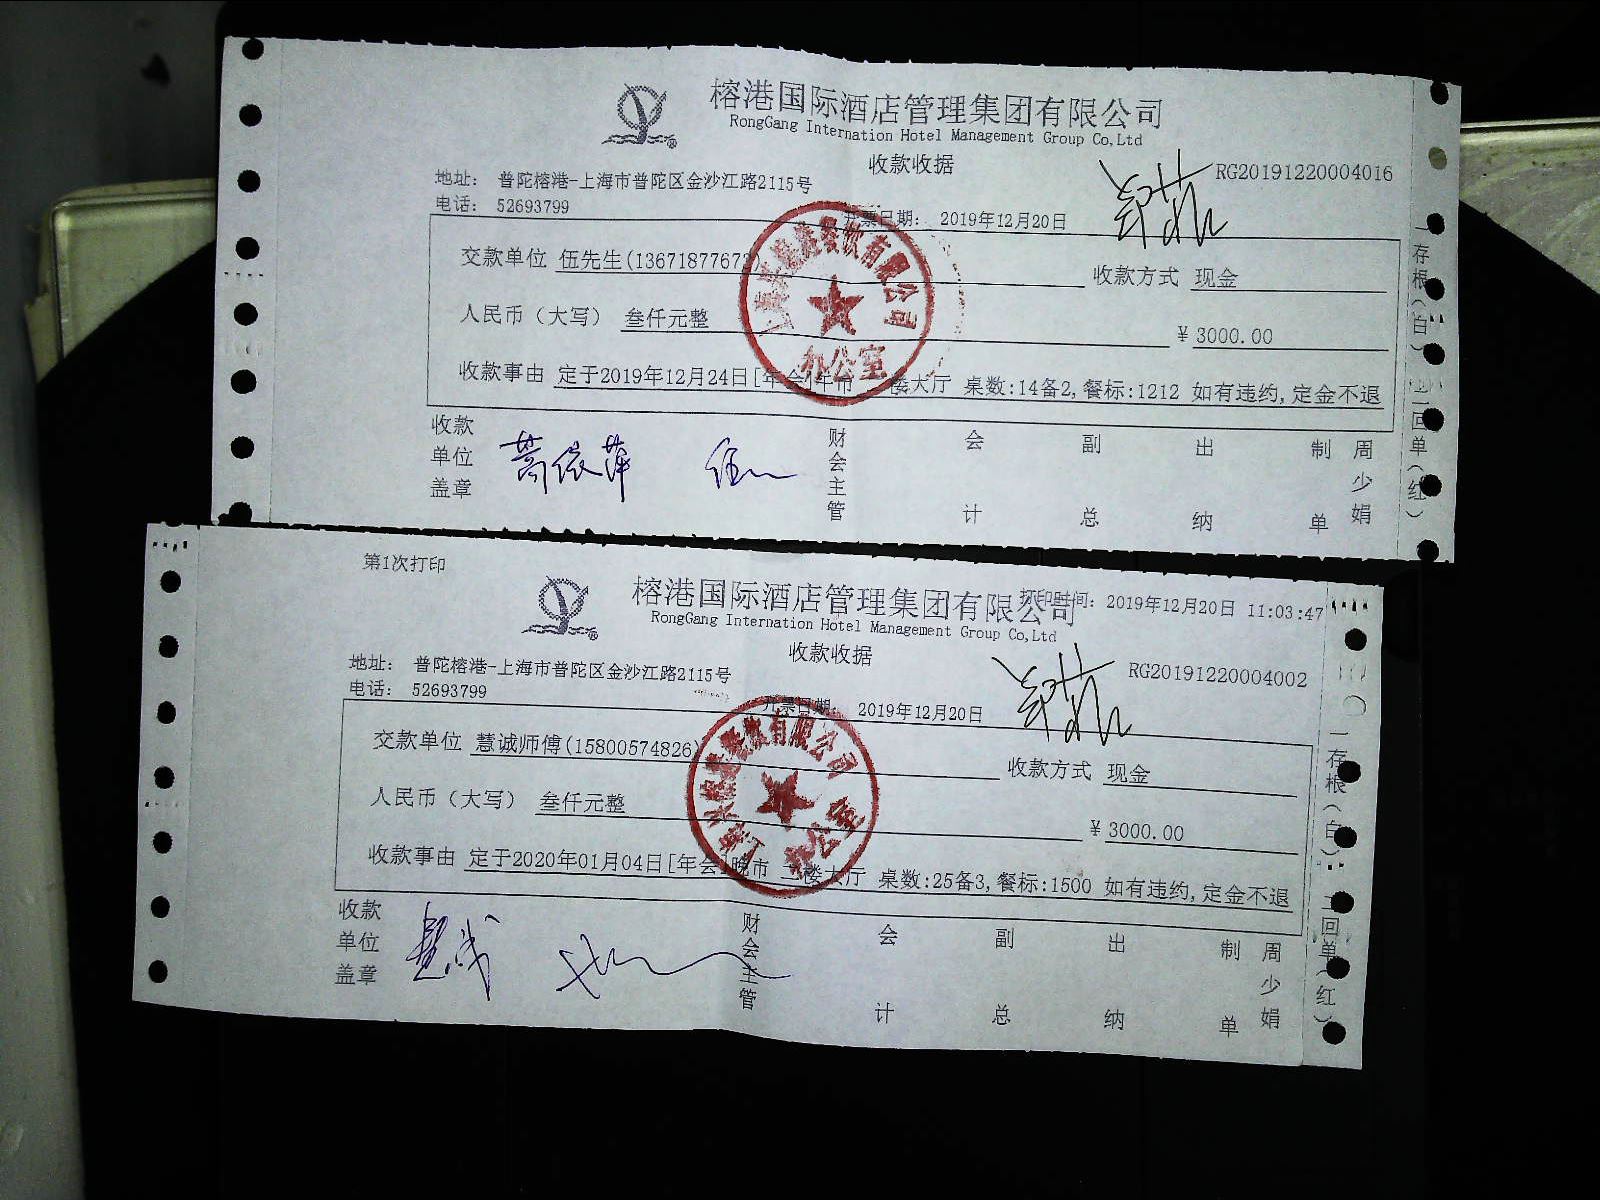 榕港国际酒店管理集团有限公司
RongGang Internation Hotel Management Group Co,Ltd
收款收据
RG20191220004016
地址： 普陀榕港-上海市普陀区金沙江路2115号
电话： 52693799
开票日期： 2019年12月20日
交款单位 伍先生(1367187767
收款方式 现金
人民币（大写） 叁仟元整
¥ 3000.00
收款事由 定于2019年12月24日[年会]午市 楼大厅 桌数:14备2,餐标:1212 如有违约,定金不退
收款单位盖章
财会主管
会计
副总
出纳
制单 周少娟
一存根(白) 二回单(红)
餐饮有限公司
办公室
第1次打印
打印时间： 2019年12月20日 11:03:47
榕港国际酒店管理集团有限公司
RongGang Internation Hotel Management Group Co,Ltd
收款收据
RG20191220004002
地址： 普陀榕港-上海市普陀区金沙江路2115号
电话： 52693799
开票日期： 2019年12月20日
交款单位 慧诚师傅(15800574826)
收款方式 现金
人民币（大写） 叁仟元整
¥ 3000.00
收款事由 定于2020年01月04日[年会]晚市 二楼大厅 桌数:25备3,餐标:1500 如有违约,定金不退
收款单位盖章
慧诚
财会主管
会计
副总
出纳
制单 周少娟
一存根(白) 二回单(红)
餐饮有限公司